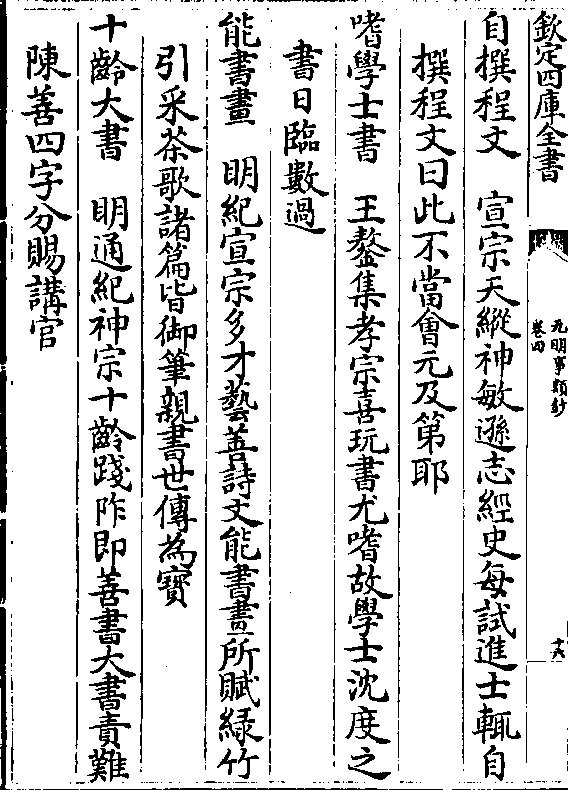 欽定四庫全書
元明事類鈔
卷四
十六
自撰程文　宣宗天縱神敏遜志經史每試進士輒自
撰程文曰此不當會元及第耶
嗜學士書　王鏊集孝宗喜玩書尤嗜故學士沈度之
書日臨數過
能書畫　明紀宣宗多才藝善詩文能書畫所賦綠竹
引采茶歌諸篇皆御筆親書世傳為寳
十齡大書　明通紀神宗十齡踐阼即善書大書責難
陳善四字分賜講官